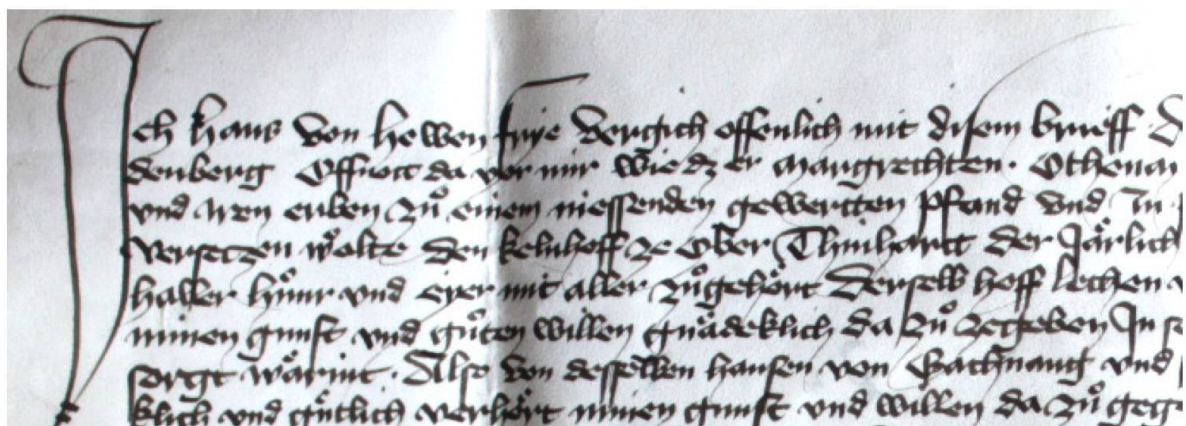 Ich Hans von Hewen frye vergich offenlich mit disem brieff
denberg Offnott da vor mir wie dz er Margrechten. Othenan
vnd Iren erben zů einem niessenden gewertten Pfand vnd In
versetzen wölte den kelnhoff ze Ober Thinhartt der Järlich
haller hůnr vnd eyer mit aller zůgehört Derselb hoff lechen v
minen gunst vnd gůten willen gnädeklich da zů zegeben In s
sorgt wärint. Also von desselben hansen von Bachnang vnd
klich vnd gůtlich verhört minen gunst vnd willen da zů geg